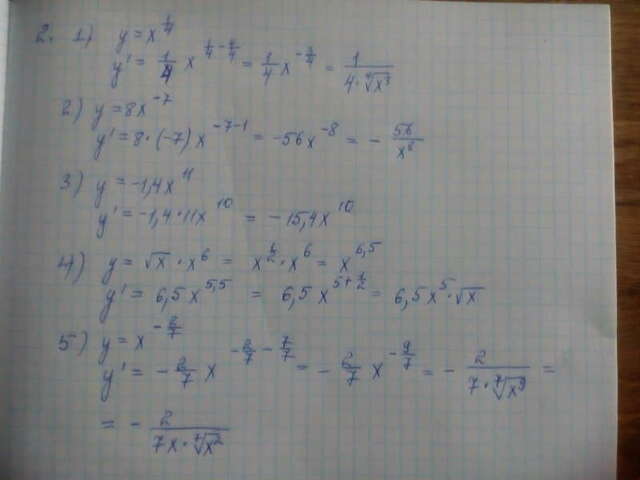 2. 1) y = x^(1/4)
y' = 1/4 x^(1/4 - 4/4) = 1/4 x^(-3/4) = 1/(4·⁴√x³)
2) y = 8x^(-7)
y' = 8·(-7)x^(-7-1) = -56x^(-8) = - 56/x⁸
3) y = -1,4x^11
y' = -1,4·11x^10 = -15,4x^10
4) y = √x · x^6 = x^(1/2) · x^6 = x^(6,5)
y' = 6,5x^(5,5) = 6,5x^(5+1/2) = 6,5x^5·√x
5) y = x^(-2/7)
y' = -2/7 x^(-2/7 - 7/7) = -2/7 x^(-9/7) = - 2/(7·⁷√x⁹) =
= - 2/(7x·⁷√x²)